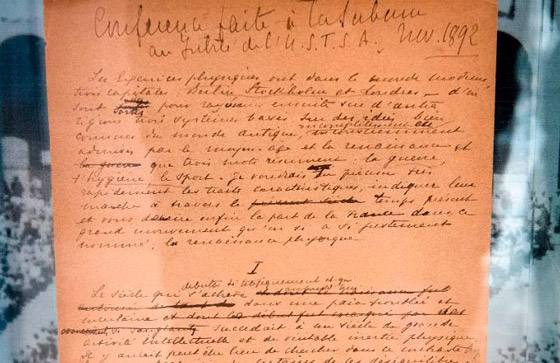 Conférence faite à la Sorbonne
au Jubilé de l'U.S.F.S.A. Nov. 1892
Les exercices physiques ont dans le monde moderne,
trois capitales : Berlin, Stockholm et Londres – d'où
sont sortis pour rayonner ensuite sur d'autres
régions trois systèmes basés sur des idées bien
connues du monde antique, incomplètement
admises par le moyen-age et la renaissance et
que trois mots résument : la guerre,
l'hygiène, le sport. Je voudrais en préciser très
rapidement les traits caractéristiques, indiquer leur
marche à travers le temps présent
et vous dire enfin la part de la France dans ce
grand mouvement qu'on a si justement
nommé : la renaissance physique
I
Le siècle qui s'achève débuta
dans une paix troublée et
incertaine et dont
succédait à un siècle de grande
activité intellectuelle et de véritable inertie physique
Il y aurait peut être lieu de chercher dans